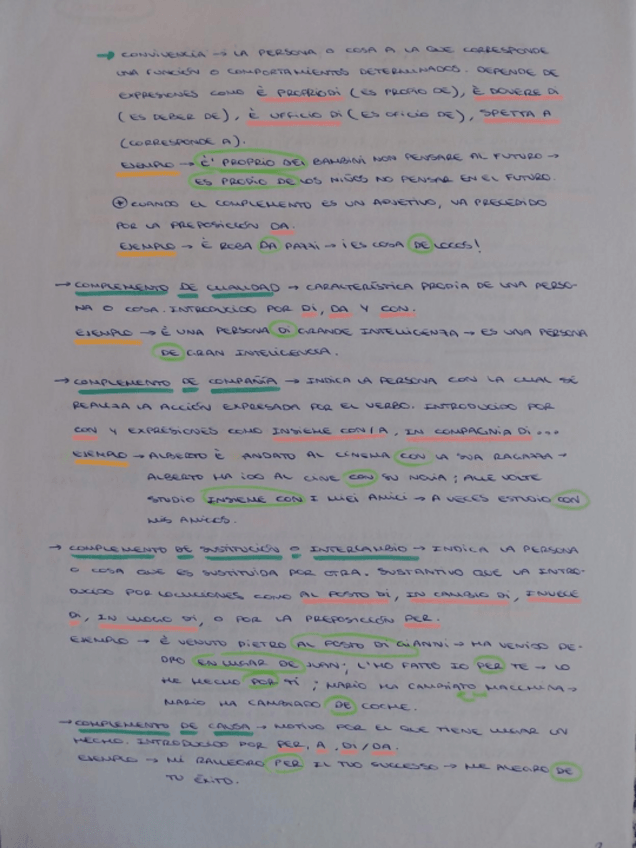 → CONVIVENCIA → LA PERSONA O COSA A LA QUE CORRESPONDE
UNA FUNCIÓN O COMPORTAMIENTOS DETERMINADOS. DEPENDE DE
EXPRESIONES COMO È PROPRIO DI (ES PROPIO DE), È DOVERE DI
(ES DEBER DE), È UFFICIO DI (ES OFICIO DE), SPETTA A
(CORRESPONDE A).
EJEMPLO → E' PROPRIO DEI BAMBINI NON PENSARE AL FUTURO →
ES PROPIO DE LOS NIÑOS NO PENSAR EN EL FUTURO.
CUANDO EL COMPLEMENTO ES UN ADJETIVO, VA PRECEDIDO
POR LA PREPOSICIÓN DA.
EJEMPLO → È ROBA DA PAZZI → ¡ES COSA DE LOCOS!
→ COMPLEMENTO DE CUALIDAD → CARACTERÍSTICA PROPIA DE UNA PERSO-
NA O COSA. INTRODUCIDO POR DI, DA Y CON.
EJEMPLO → È UNA PERSONA DI GRANDE INTELLIGENZA → ES UNA PERSONA
DE GRAN INTELIGENCIA.
→ COMPLEMENTO DE COMPAÑÍA → INDICA LA PERSONA CON LA CUAL SE
REALIZA LA ACCIÓN EXPRESADA POR EL VERBO. INTRODUCIDO POR
CON Y EXPRESIONES COMO INSIEME CON/A, IN COMPAGNIA DI...
EJEMPLO → ALBERTO È ANDATO AL CINEMA CON LA SUA RAGAZZA →
ALBERTO HA IDO AL CINE CON SU NOVIA; ALLE VOLTE
STUDIO INSIEME CON I MIEI AMICI → A VECES ESTUDIO CON
MIS AMIGOS.
→ COMPLEMENTO DE SUSTITUCIÓN O INTERCAMBIO → INDICA LA PERSONA
O COSA QUE ES SUSTITUIDA POR OTRA. SUSTANTIVO QUE LA INTRO-
DUCIDO POR LOCUCIONES COMO AL POSTO DI, IN CAMBIO DI, INVECE
DI, IN LUOGO DI, O POR LA PREPOSICIÓN PER.
EJEMPLO → È VENUTO PIETRO AL POSTO DI GIANNI → HA VENIDO PE-
DRO EN LUGAR DE JUAN; L'HO FATTO IO PER TE → LO
HE HECHO POR TI; MARIO HA CAMBIATO MACCHINA →
MARIO HA CAMBIADO DE COCHE.
→ COMPLEMENTO DE CAUSA → MOTIVO POR EL QUE TIENE LUGAR UN
HECHO. INTRODUCIDO POR PER, A, DI/DA.
EJEMPLO → MI RALLEGRO PER IL TUO SUCCESSO → ME ALEGRO DE
TU ÉXITO.